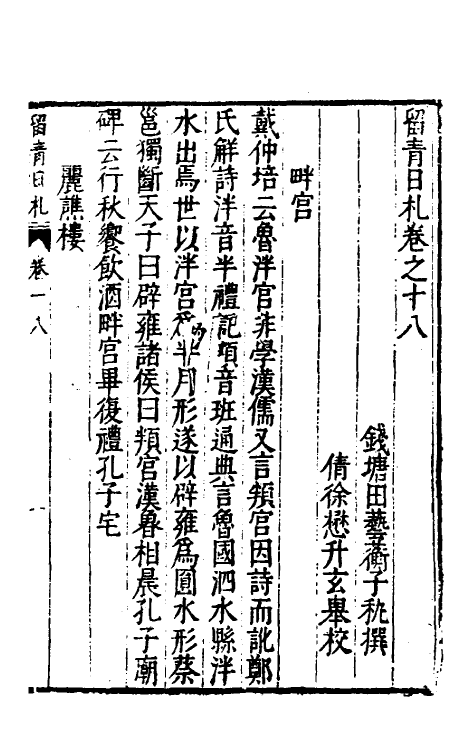 留青日札卷之十八
錢塘田藝蘅子秇撰
倩徐懋升玄舉校
畔宮
戴仲培云魯泮官非學漢儒又言頖官因詩而訛鄭
氏解詩泮音半禮記頖音班通典言魯國泗水縣泮
水出焉世以泮宮為半月形遂以辟雍為圓水形蔡
邕獨斷天子曰辟雍諸侯曰頖官漢魯相晨孔子廟
碑云行秋饗飲酒畔宮畢復禮孔子宅
麗譙樓
留青日札 卷一八 一